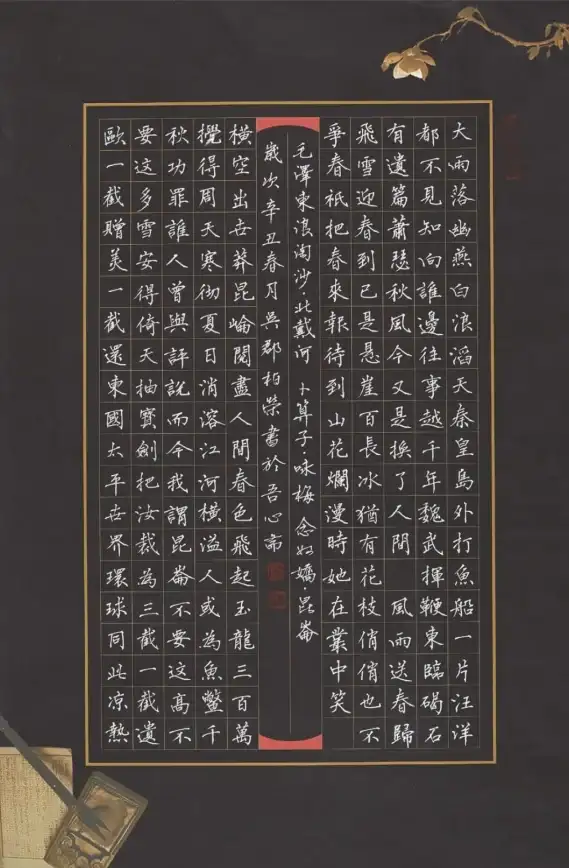 大雨落幽燕白浪滔天秦皇島外打魚船一片汪洋
都不見知向誰邊往事越千年魏武揮鞭東臨碣石
有遺篇蕭瑟秋風今又是換了人間 風雨送春歸
飛雪迎春到已是悬崖百長冰猶有花枝俏俏也不
爭春祇把春來報待到山花爛漫時她在叢中笑
毛澤東浪淘沙·北戴河 卜算子·咏梅 念奴嬌·昆崙
歲次辛丑春月吳郡柏榮書於吾心齋
橫空出世莽昆崘閱盡人間春色飛起玉龍三百萬
攪得周天寒彻夏日消溶江河橫溢人或為魚鱉千
秋功罪誰人曾與評說而今我謂昆崙不要這高不
要這多雪安得倚天抽寶劍把汝裁為三截一截遺
歐一截贈美一截還東國太平世界環球同此凉熱